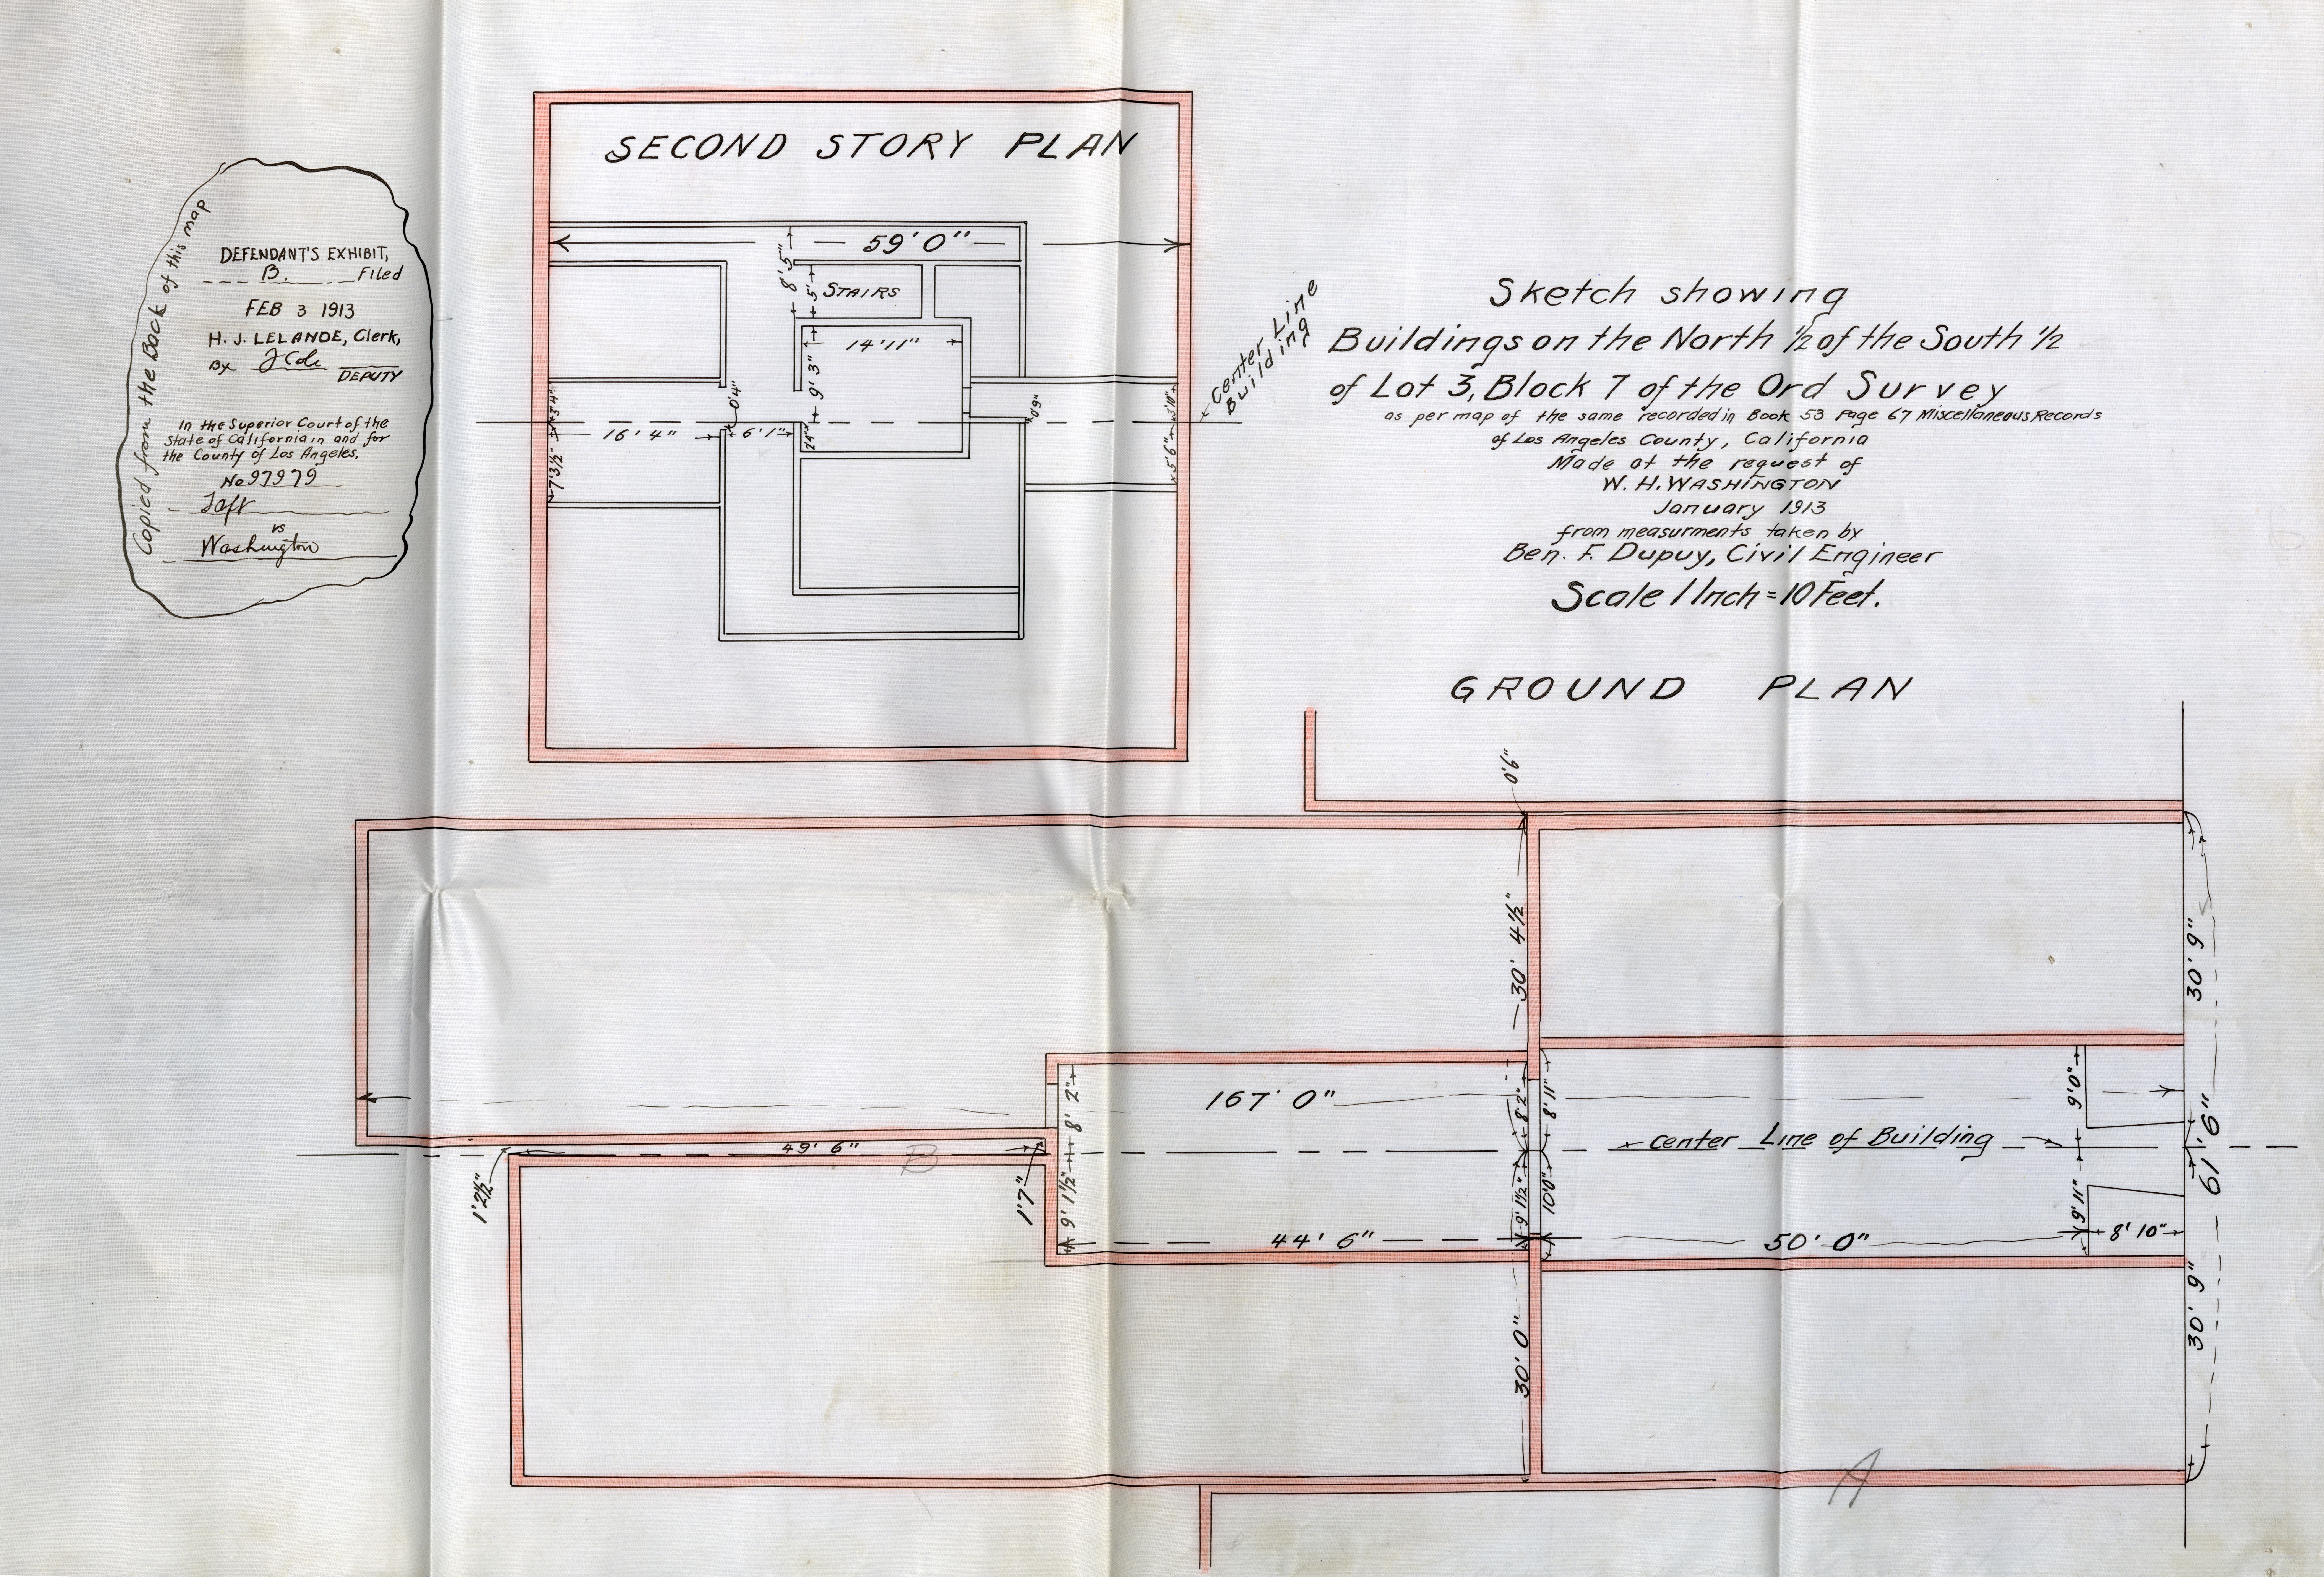 Copied from the Back of this map
DEFENDANT'S EXHIBIT,
B. Filed
FEB 3 1913
H. J. LELANDE, Clerk,
By J Cole
DEPUTY
In the Superior Court of the
State of California in and for
the County of Los Angeles.
No 97979
Taft
vs
Washington
SECOND STORY PLAN
59' 0"
8' 5"
5'
STAIRS
14' 11"
9' 3"
0'4"
3'4"
16' 4"
6' 1"
7' 3½"
0'9"
3'10"
5'6"
Center Line
Building
Sketch showing
Buildings on the North ½ of the South ½
of Lot 3, Block 7 of the Ord Survey
as per map of the same recorded in Book 53 Page 67 Miscellaneous Records
of Los Angeles County, California
Made at the request of
W. H. WASHINGTON
January 1913
from measurments taken by
Ben. F. Dupuy, Civil Engineer
Scale 1 Inch = 10 Feet.
GROUND PLAN
30' 4½"
30' 9"
167' 0"
8' 2"
8' 2"
8' 11"
9' 0"
Center Line of Building
49' 6"
B
1' 2½"
1' 7"
9' 1½"
9' 1½"
10'0"
9' 11"
61' 6"
44' 6"
50' 0"
8' 10"
30' 0"
30' 9"
A